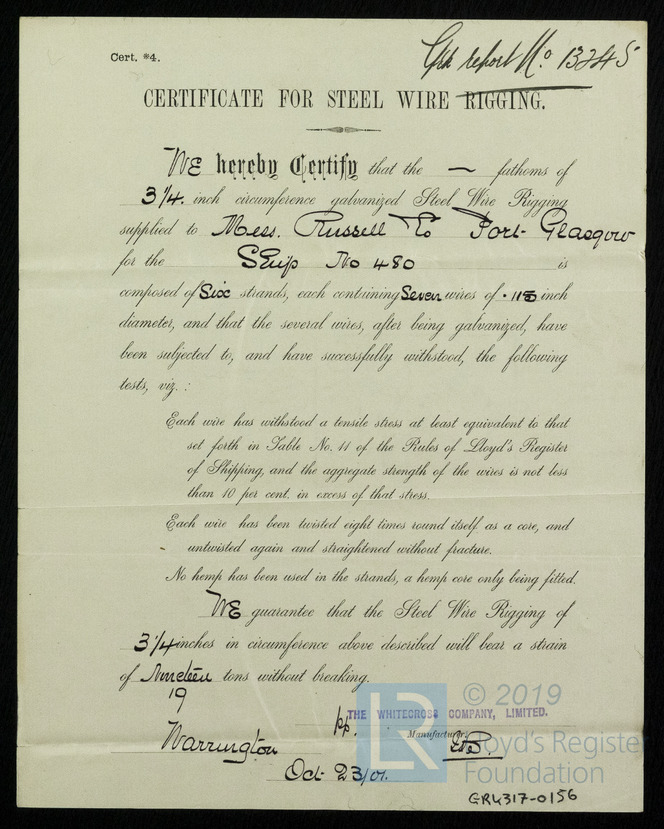 Cert. *4.
Grk report No. 13245
CERTIFICATE FOR STEEL WIRE RIGGING.
WE hereby Certify that the — fathoms of
3 1/4 inch circumference galvanized Steel Wire Rigging
supplied to Mess. Russell & Co Port-Glasgow
for the Ship No 480 is
composed of Six strands, each containing Seven wires of inch
diameter, and that the several wires, after being galvanized, have
been subjected to, and have successfully withstood, the following
tests, viz. :
Each wire has withstood a tensile stress at least equivalent to that
set forth in Table No. 11 of the Rules of Lloyd's Register
of Shipping, and the aggregate strength of the wires is not less
than 10 per cent. in excess of that stress.
Each wire has been twisted eight times round itself as a core, and
untwisted again and straightened without fracture.
No hemp has been used in the strands, a hemp core only being fitted.
WE guarantee that the Steel Wire Rigging of
3 1/4 inches in circumference above described will bear a strain
of Nineteen tons without breaking.
19
LR
© 2019
Lloyd's Register
Foundation
pp. THE WHITECROSS COMPANY, LIMITED.
Manufacturer.
Warrington
Oct 23/01.
GRK317-0156